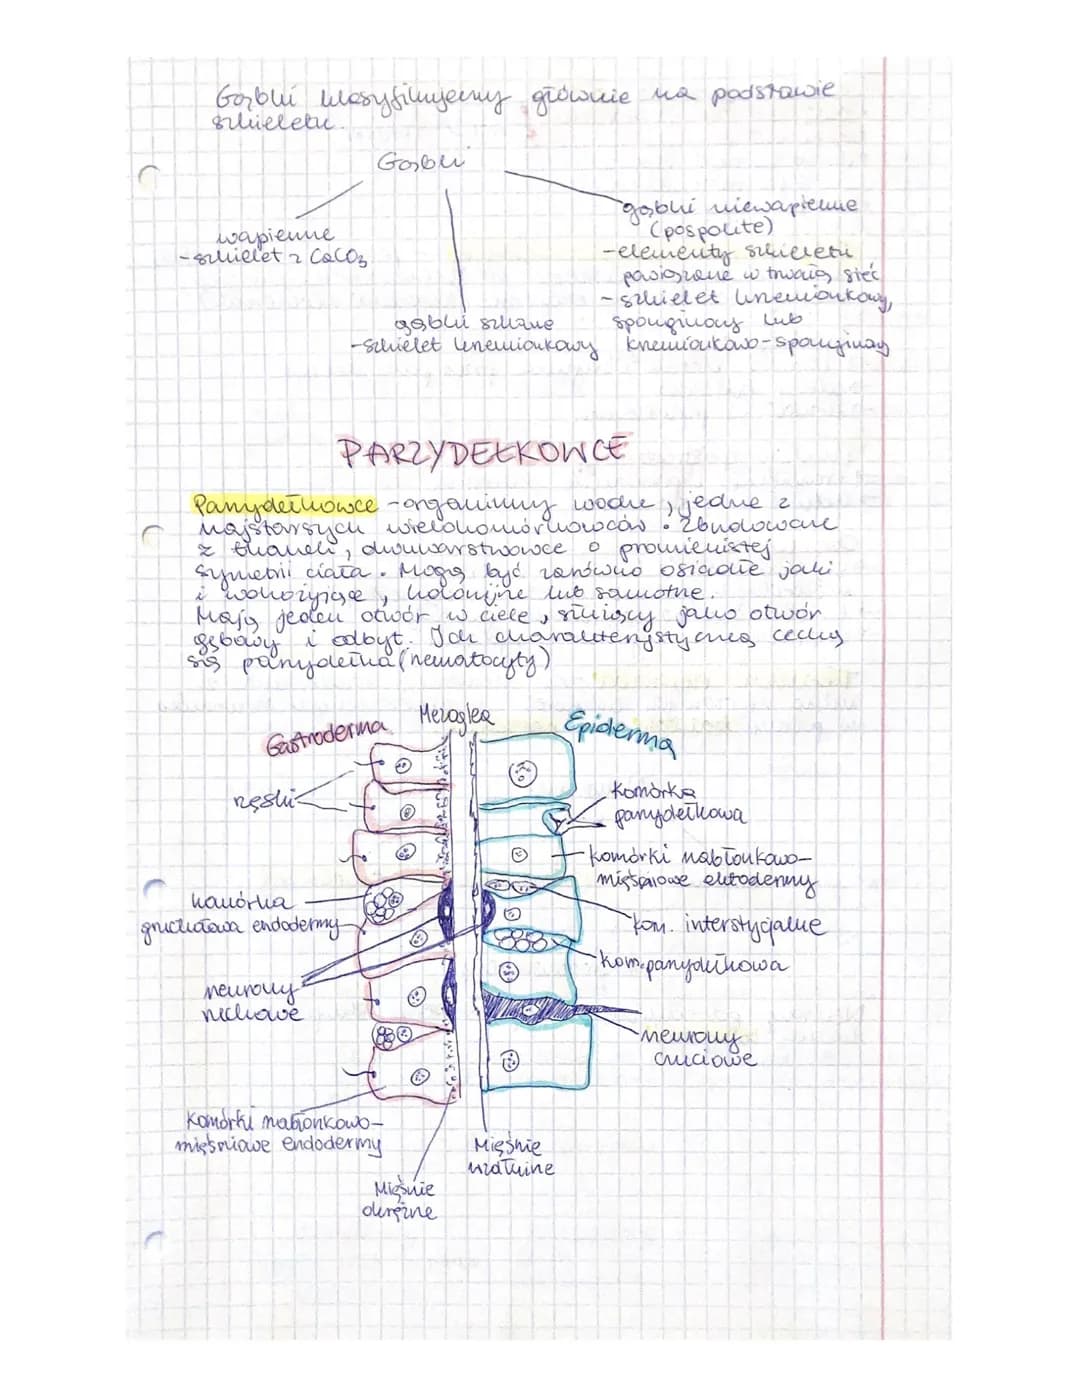 Gąbki klasyfikujemy głównie na podstawie
szkieletu.
Gąbki
wapienne
-szkielet z CaCO3
gąbki szklane
-szkielet krzemionkowy
gąbki niewapienne
(pospolite)
-elementy szkieletu
powiązane w trwałą sieć
-szkielet krzemionkowy,
sponginowy lub
krzemionkowo-sponginowy
PARZYDEŁKOWCE
Parzydełkowce -organizmy wodne, jedne z
najstarszych wielokomórkowców. Zbudowane
z tkanek, dwuwarstwowce o promienistej
symetrii ciała. Mogą być zarówno osiadłe jak
i wolnożyjące, kolonijne lub samotne.
Mają jeden otwór w ciele, służący jako otwór
gębowy i odbyt. Ich charakterystyczną cechą
są parzydełka (nematocyty)
Gastroderma
Mezoglea
Epiderma
rzęski
komórka
parzydełkowa
komórki nabłonkowo-
mięśniowe ektodermy
komórka
gruczołowa endodermy
kom. interstycjalne
kom. parzydełkowa
neurony
ruchowe
neurony
czuciowe
Komórki nabłonkowo-
mięśniowe endodermy
Mięśnie
wzdłużne
Mięśnie
okrężne